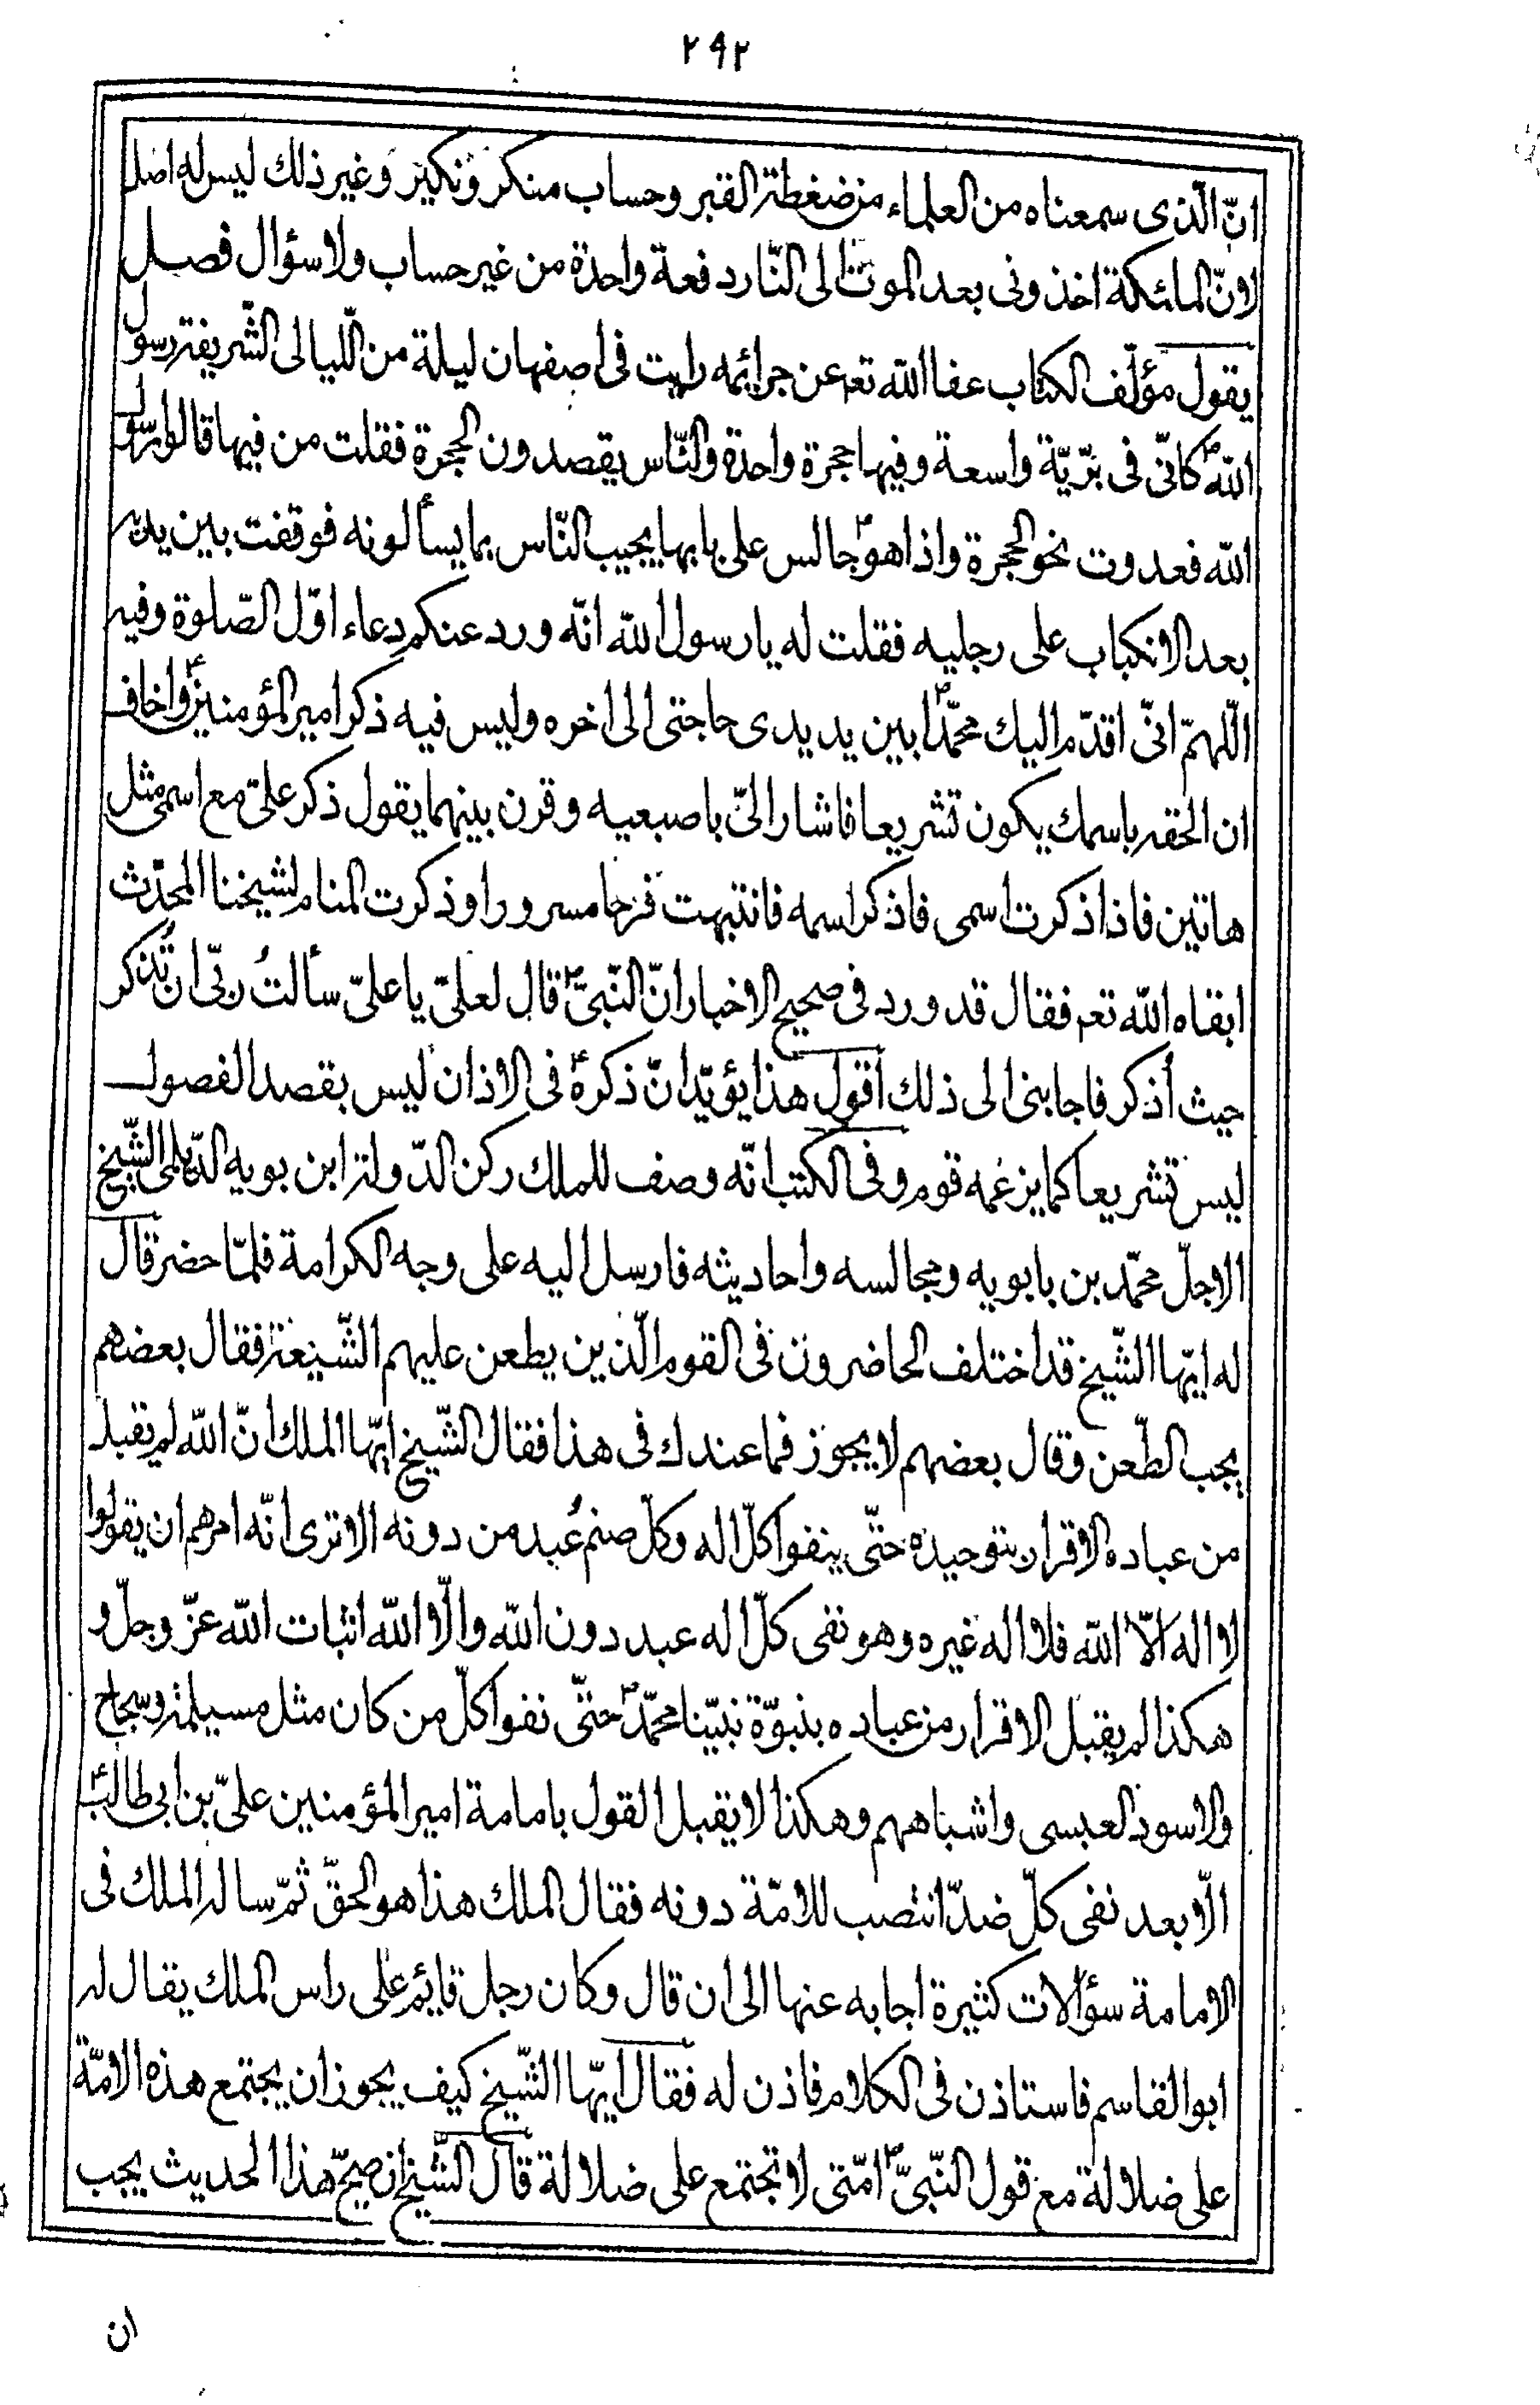 ٢٩٢
انّ الّذى سمعناه من العلماء من ضغطة القبر وحساب منكر ونكير وغير ذلك ليس له اصل
لانّ الملئكة اخذونى بعد الموت الى النّار دفعة واحدة من غير حساب ولا سؤال فصل
يقول مؤلّف الكتاب عفا الله تعه عن جرائمه رايت فى اصفهان ليلة من اللّيالى الشّريفة رسول
اللهص كانّى فى برّيّة واسعة وفيها حجرة واحدة والنّاس يقصدون الحجرة فقلت من فيها قالوا رسول
الله فعدوت نحو الحجرة واذا هوص جالس على بابها يجيب النّاس بما يسألونه فوقفت بين يديه
بعد الانكباب على رجليه فقلت له يا رسول الله انّه ورد عنكم دعاء اوّل الصّلوة وفيه
اللّهمّ انّى اقدّم اليك محمّداص بين يديدى حاجتى الى اخره وليس فيه ذكر امير المؤمنينع واخاف
ان الحقه باسمك يكون تشريعا فاشار الىّ باصبعيه وقرن بينهما يقول ذكر علىّ مع اسمى مثل
هاتين فاذا ذكرت اسمى فاذكر اسمه فانتبهت فرحا مسرورا وذكرت المنام لشيخنا المحدّث
ابقاه الله تعه فقال قد ورد فى صحيح الاخبار انّ النّبىّص قال لعلىّ يا علىّ سألتُ ربّى ان تُذكر
حيث أذكر فاجابنى الى ذلك أقول هذا يؤيّد انّ ذكرهع فى الاذان ليس بقصد الفصول
ليس تشريعا كما يزعمه قوم وفى الكتب انّه وصف للملك ركن الدّولة ابن بويه الدّيلمى الشّيخ
الاجلّ محمّد بن بابويه ومجالسه واحاديثه فارسل اليه على وجه الكرامة فلمّا حضر قال
له ايّها الشّيخ قد اختلف الحاضرون فى القوم الّذين يطعن عليهم الشّيعة فقال بعضهم
يجب الطّعن وقال بعضهم لا يجوز فما عندك فى هذا فقال الشّيخ ايّها الملك انّ الله لم يقبل
من عباده الاقرار بتوحيده حتّى ينفوا كلّ اله وكلّ صنم عُبد من دونه الا ترى انّه امرهم ان يقولوا
لا اله الّا الله فلا اله غيره وهو نفى كلّ اله عبد دون الله والّا الله اثبات الله عزّ وجلّ و
هكذا لم يقبل الاقرار من عباده بنبوّة نبيّنا محمّدص حتّى نفوا كلّ من كان مثل مسيلمة وسجاح
والاسود العبسى واشباههم وهكذا لا يقبل القول بامامة امير المؤمنين علىّ بن ابى طالبع
الّا بعد نفى كلّ ضدّ انتصب للامّة دونه فقال الملك هذا هو الحقّ ثمّ ساله الملك فى
الامامة سؤالات كثيرة اجابه عنها الى ان قال وكان رجل قايم على راس الملك يقال له
ابو القاسم فاستاذن فى الكلام فاذن له فقال ايّها الشّيخ كيف يجوز ان يجتمع هذه الامّة
على ضلالة مع قول النّبىّص امّتى لا تجتمع على ضلالة قال الشّيخ ان صحّ هذا الحديث يجب
ان